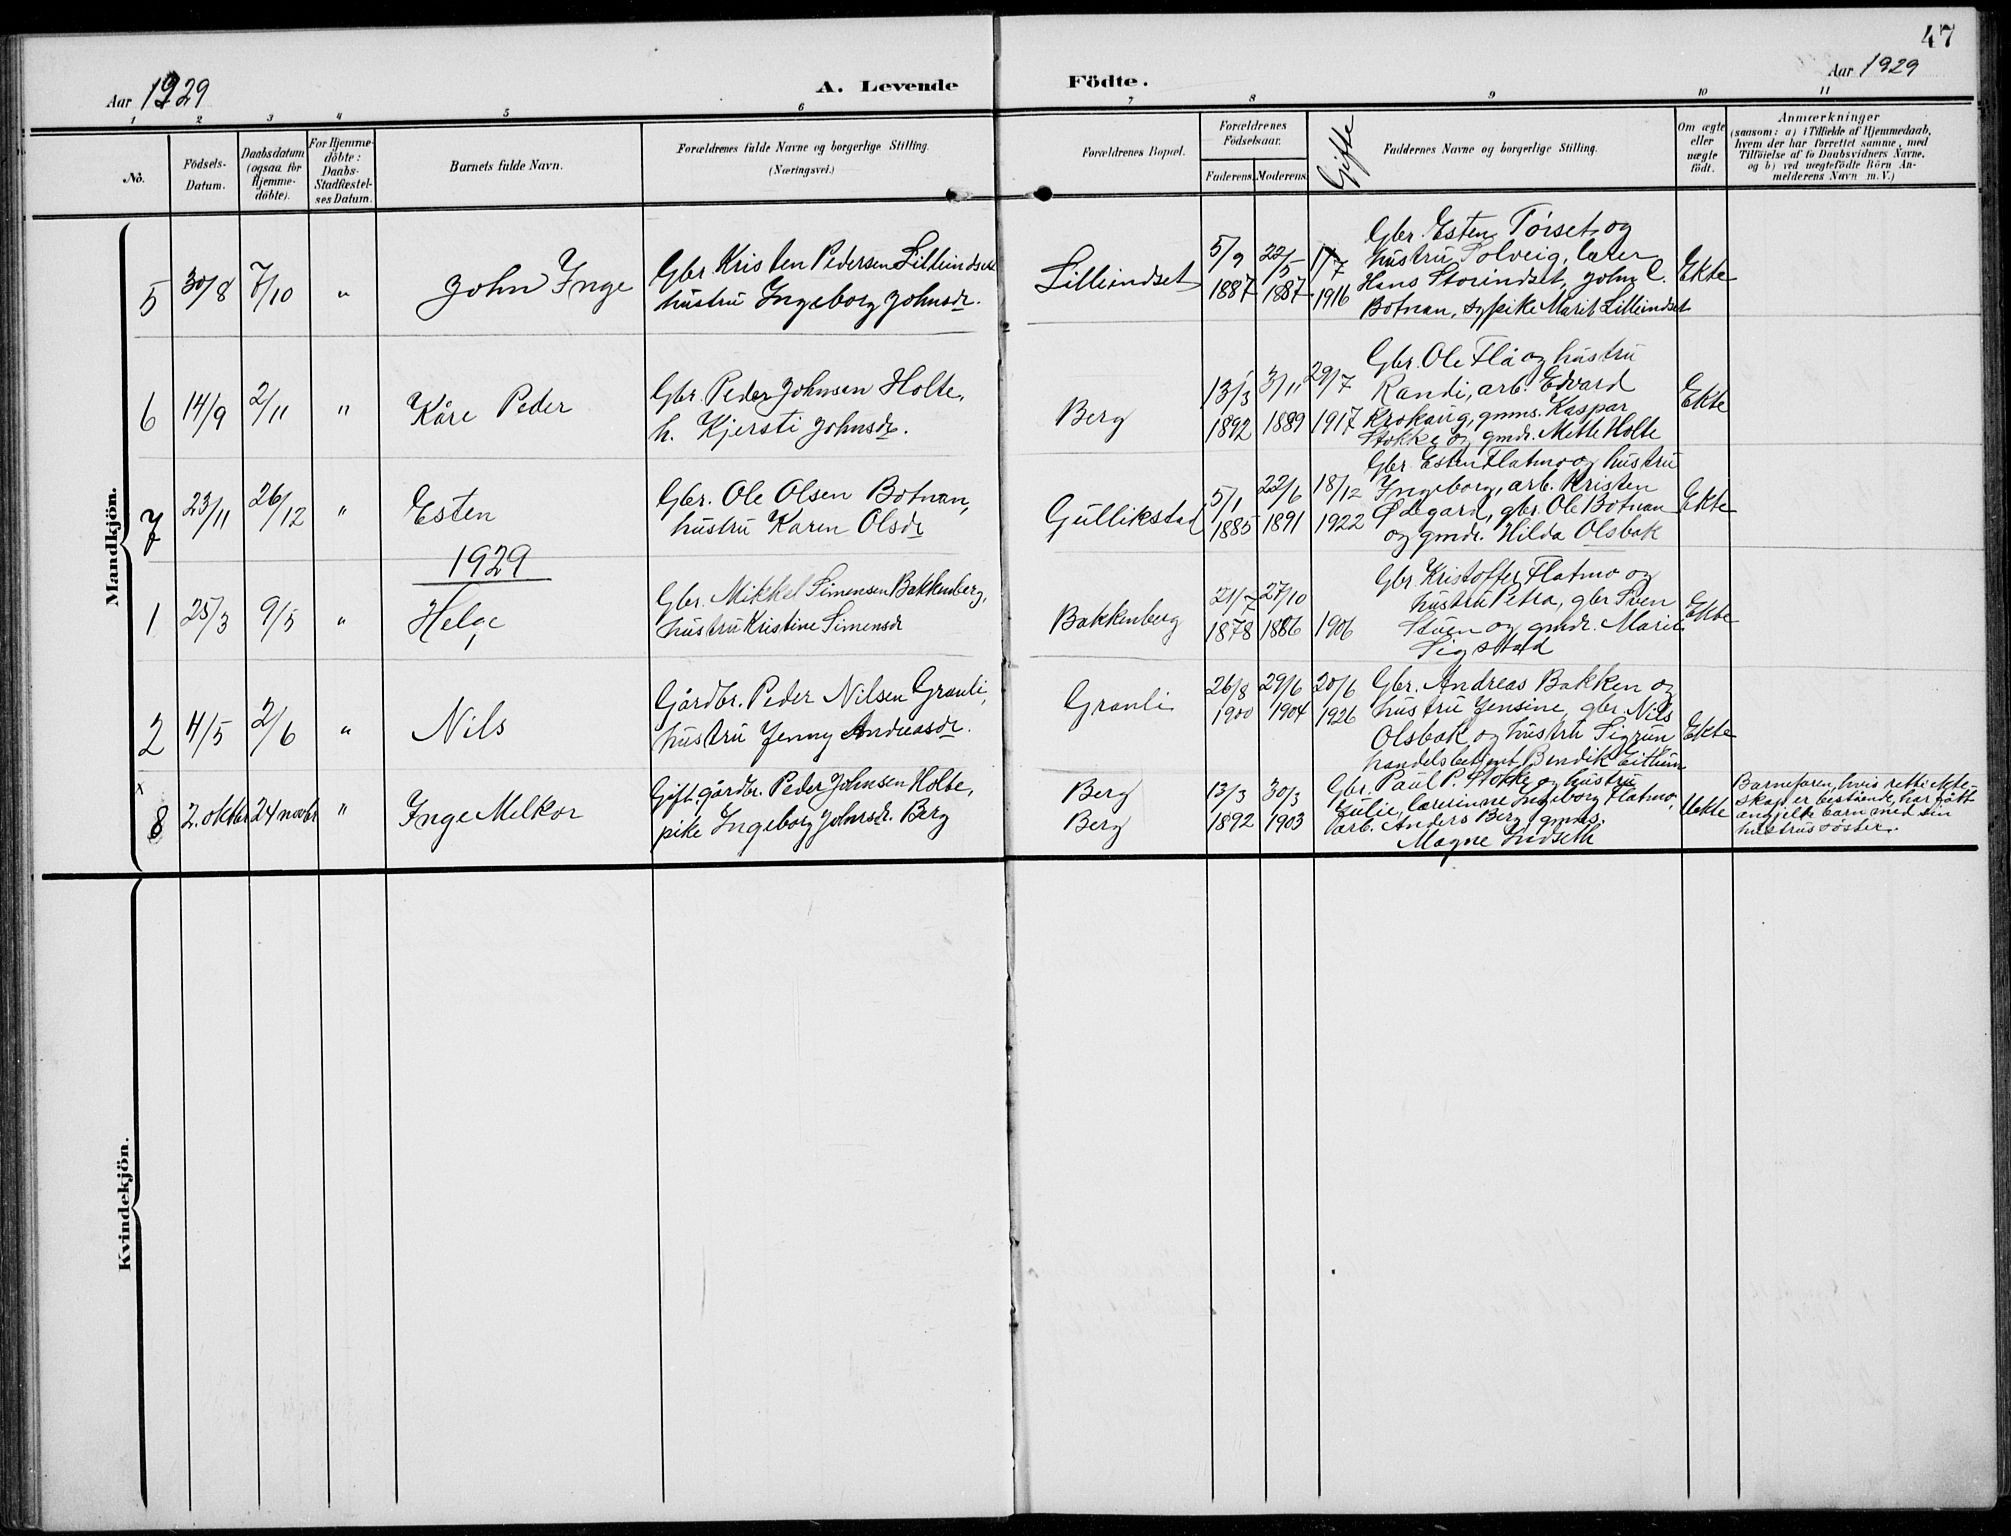 47
Aar 1929
A. Levende Födte.
Aar 1929
1 2 3 4 5 6 7 8 9 10 11
No.
Födsels-Datum.
Daabsdatum (ogsaa for Hjemme-döbte).
For Hjemme-döbte: Daabs-Stadfæstel-ses Datum.
Barnets fulde Navn.
Forældrenes fulde Navne og borgerlige Stilling.
(Næringsvei.)
Forældrenes Bopæl.
Forældrenes Födselsaar.
Faderens. Moderens.
Gifte
Faddernes Navne og borgerlige Stilling.
Om ægte eller uægte födt.
Anmærkninger
(saasom: a) i Tilfælde af Hjemmedaab,
hvem der har forrettet samme, med
Tilföielse af to Daabsvidners Navne,
og b) ved uægtefödte Börn An-
melderens Navn m. V.)
Mandkjön.
5 30/8 7/10 " John Inge
Gbr. Kristen Pedersen Lilleindset
hustru Ingeborg Johnsdr.
Lilleindset
5/9 1887
22/5 1887
1/7 1916
Gbr. Esten Törset og
hustru Solveig, lærer
Hans Storindset, John E.
Botnan, sypike Marit Lilleindset
Ekte
6 14/9 2/11 " Kåre Peder
Gbr. Peder Johnsen Holte,
h. Kjersti Johnsdr.
Berg
13/3 1892
3/11 1889
29/7 1917
Gbr. Ole Flå og hustru
Randi, arb. Edvard
Krokaug, gmms. Kaspar
Stokke og gmdr. Mette Holte
Ekte
7 23/11 26/12 " Esten
Gbr. Ole Olsen Botnan,
hustru Karen Olsdr
Gullikstad
5/1 1885
22/6 1891
18/12 1922
Gbr. Esten Flatmo og hustru
Ingeborg, arb. Kristen
Ødegard, gbr. Ole Botnan
og gmdr. Hilda Olsbak
Ekte
1929
1 25/3 9/5 " Helge
Gbr. Mikkel Simensen Bakkenberg,
hustru Kristine Simensdr
Bakkenberg
21/7 1878
27/10 1886
1906
Gbr. Kristoffer Flatmo og
hustru Petra, gbr Sven
Stuen og gmdr. Marit
Sigstad
Ekte
2 4/5 2/6 " Nils
Gårdbr. Peder Nilsen Granli,
hustru Jenny Andreasdr.
Granli
26/8 1900
29/6 1904
20/6 1926
Gbr. Andreas Bakken og
hustru Jensine, gbr. Nils
Olsbak og hustru Sigrun
handelsbetjent Bendik Eithun
Ekte
x
8 2. oktbr 24 novbr " Inge Melkor
Gift gårdbr. Peder Johnsen Holte,
pike Ingeborg Johnsdr. Berg
Berg
Berg
13/3 1892
30/3 1903
Gbr. Paul P. Stokke og hustru
Julie, lærerinne Ingeborg Flatmo,
arb. Anders Berg, gmms.
Magne Indseth
Uekte
Barnefaren, hvis rette ekte-
skap er bestående, har fått
angjeldende barn med sin
hustrus søster.
Kvindekjön.